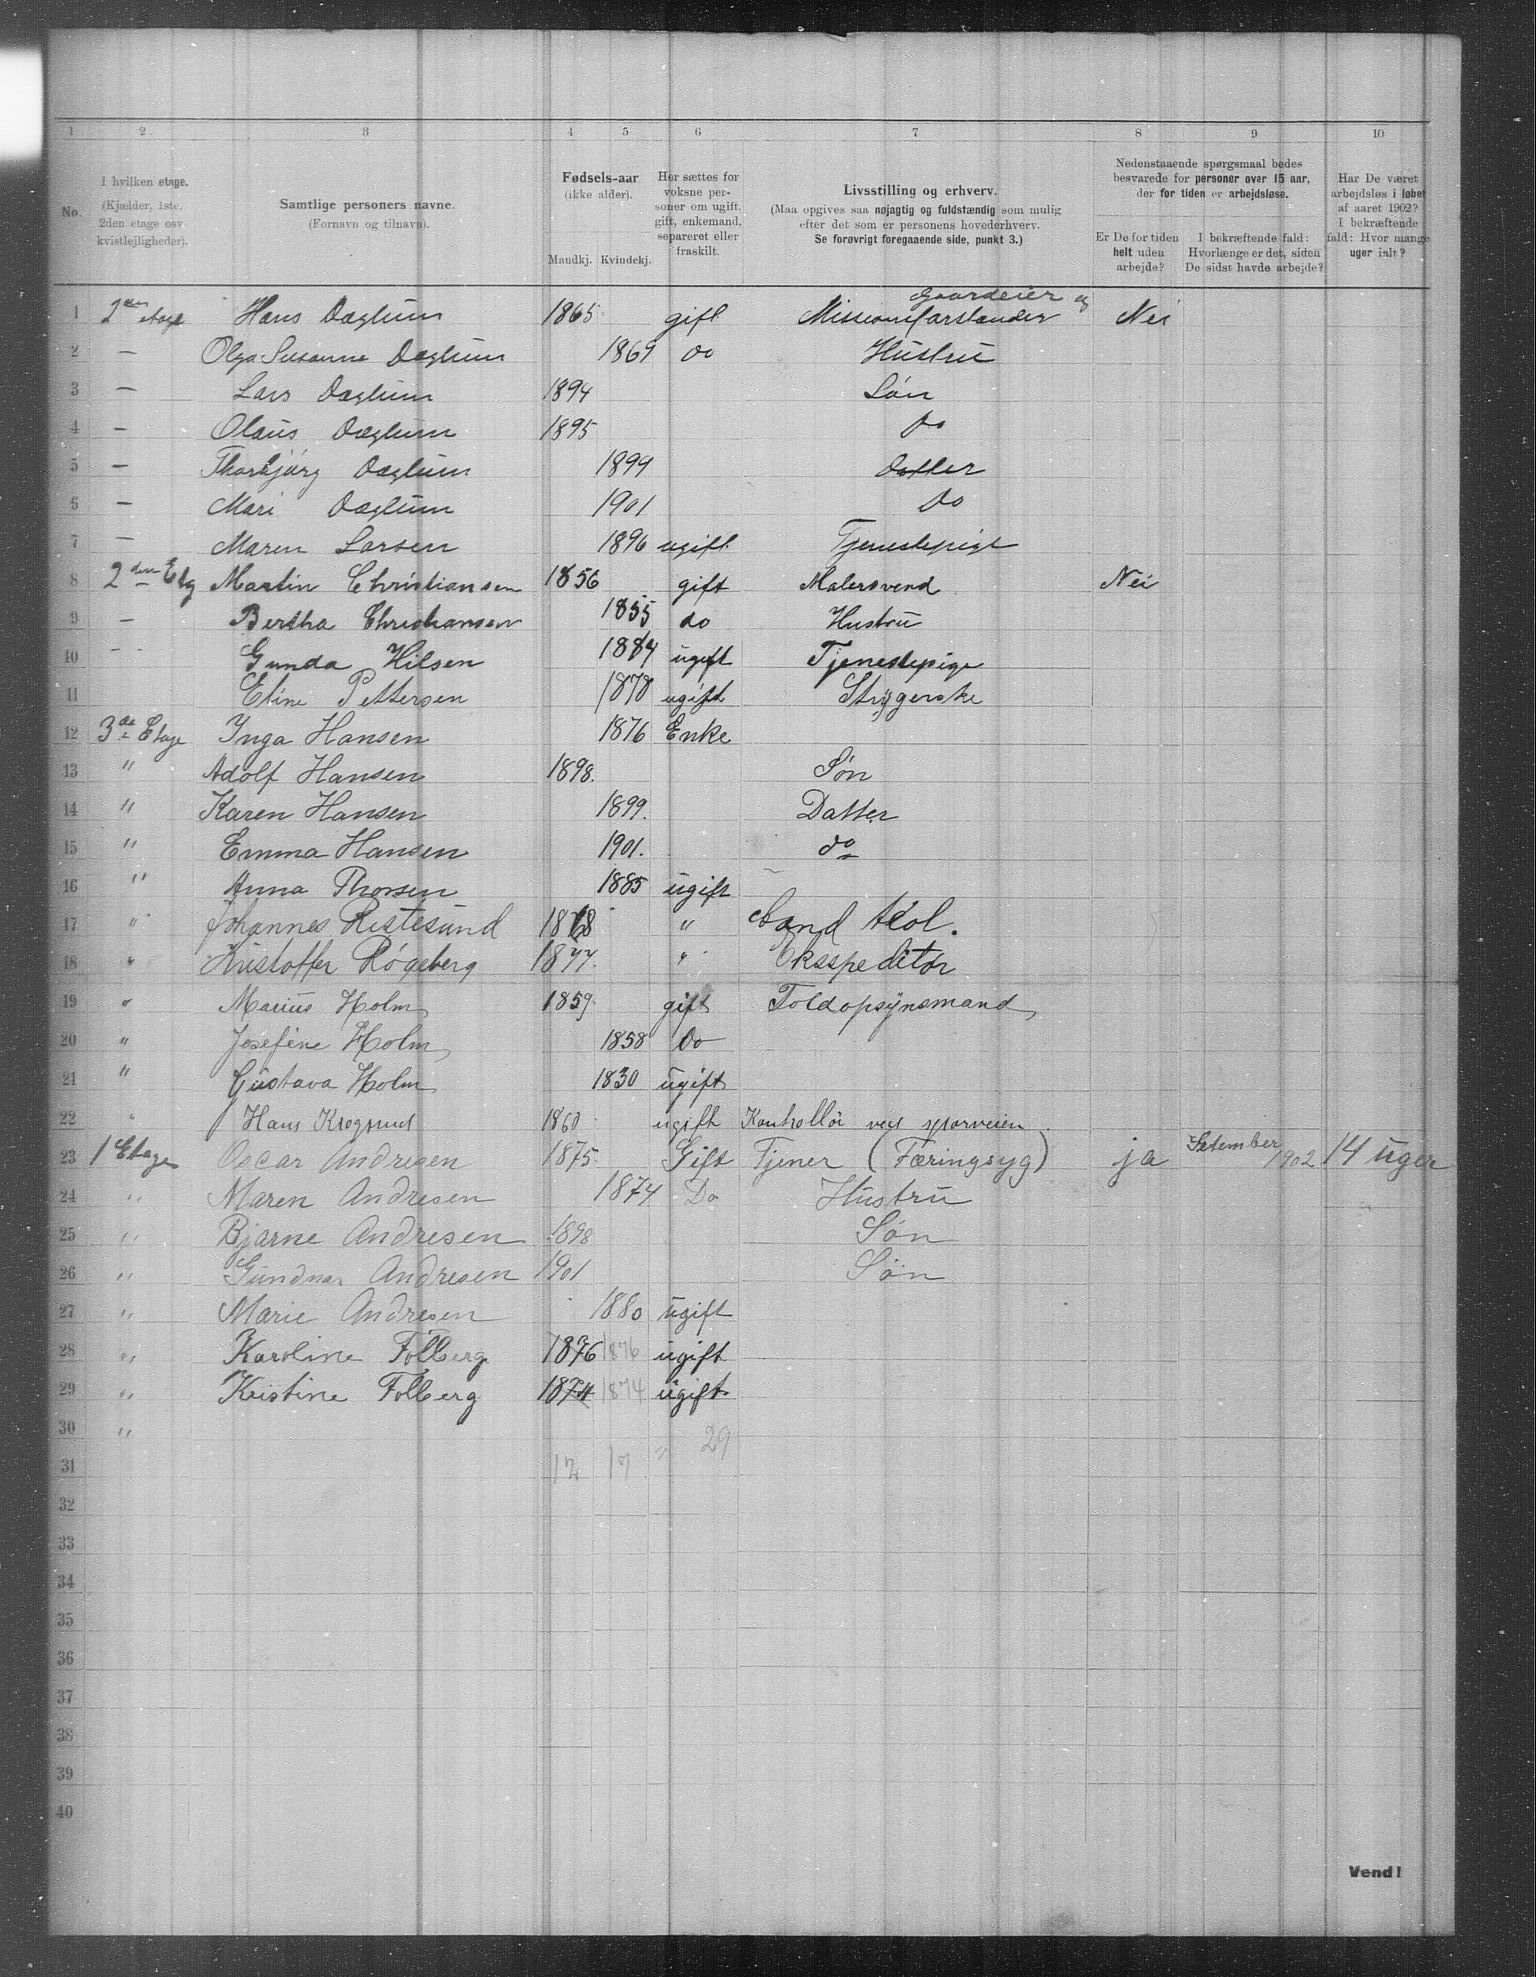 1 2 3 4 5 6 7 8 9 10
No.
I hvilken etage.
(Kjælder, 1ste, 2den etage osv. kvistlejligheder).
Samtlige personers navne.
(Fornavn og tilnavn).
Fødsels-aar
(ikke alder).
Mandkj. Kvindekj.
Her sættes for voksne personer om ugift, gift, enkemand, separeret eller fraskilt.
Livsstilling og erhverv.
(Maa opgives saa nøjagtig og fuldstændig som mulig
efter det som er personens hovederhverv.
Se forøvrigt foregaaende side, punkt 3.)
Nedenstaaende spørgsmaal bedes
besvarede for personer over 15 aar,
der for tiden er arbejdsløse.
Er De for tiden helt uden arbejde?
I bekræftende fald: Hvorlænge er det, siden De sidst havde arbejde?
Har De været arbejdsløs i løbet af aaret 1902? I bekræftende fald: Hvor mange uger ialt?
1 2den etage Hans Dæglum 1865 gift Gaardeier og Missionsforstander Nei
2 — Olga Susanne Dæglum 1869 do Hustru
3 — Lars Dæglum 1894 Søn
4 — Olaus Dæglum 1895 do
5 — Thorbjørg Dæglum 1899 datter
6 — Mari Dæglum 1901 do
7 — Maren Larsen 1896 ugift Tjenestepige
8 2den Etg Martin Christiansen 1856 gift Malersvend Nei
9 — Bertha Christiansen 1855 do Hustru
10 - - Gunda Hilsen 1884 ugift Tjenestepige
11 Eline Pettersen 1878 ugift Strygerske
12 3de Etage Inga Hansen 1876 Enke
13 " Adolf Hansen 1898. Søn
14 " Karen Hansen 1899. Datter
15 " Emma Hansen 1901. do
16 " Anna Thorsen 1885 ugift
17 " Johannes Ristesund 1868 " Cand teol.
18 " Kristoffer Røgeberg 1877. " Eksspeditør
19 " Marius Holm 1859. gift Toldopsynsmand
20 " Josefine Holm 1858 Do
21 " Gustava Holm 1830 ugift
22 " Hans Krogsrud 1860 ugift Kontrollør ved sporveien
23 1 Etage Oscar Andresen 1875 Gift Tjener (Færingsyg) ja Setember 1902 14 uger
24 " Maren Andresen 1874 Do Hustru
25 " Bjarne Andresen 1898 Søn
26 " Gundnar Andresen 1901 Søn
27 " Marie Andresen 1880 ugift
28 " Karoline Folberg 1876 1876 ugift
29 " Kristine Folberg 1874 1874 ugift
30 "
31 12 17 " 29
32
33
34
35
36
37
38
39
40
Vend!